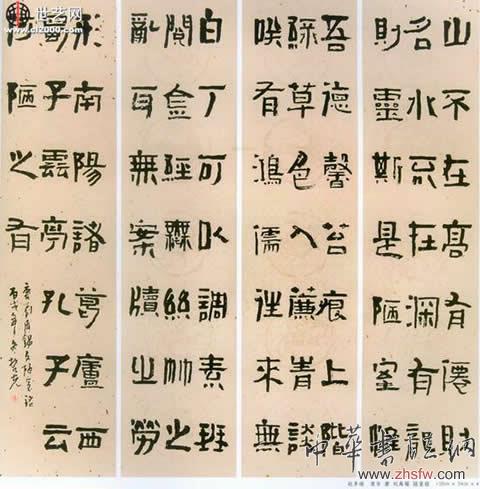 世艺网
www.cl2000.com
山不在高有僊則
名水不在深有龍
則靈斯是陋室惟
吾德馨苔痕上階
綠草色入簾青談
笑有鴻儒往來無
白丁可以調素琴
閱金經無絲竹之
亂耳無案牘之勞
形南陽諸葛廬西
蜀子雲亭孔子云
何陋之有
唐劉禹錫文陋室銘
丙戌年冬
中華書法網
www.zhsfw.com